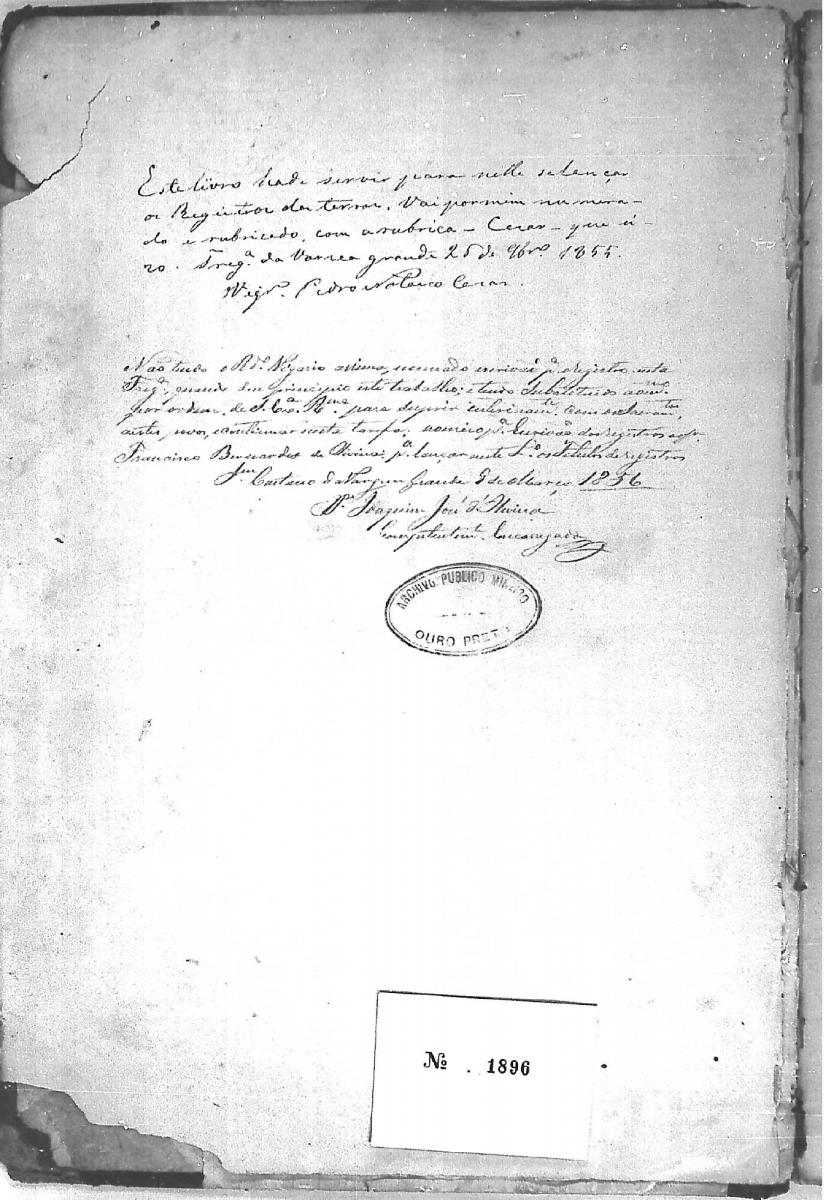 Este livro hade servir para nelle se lançar
os Registros das terras. Vai por mim numera-
do e rubricado, com a rubrica - Cezar - que ú-
zo. Freg.ª da Varzea grande 25 de 9br.º 1855.
Vigr.º Pedro Cezar.
Não tendo o Rd.º Vigario assima nomeado escrivão p.ª registro nesta
Freg.ª, quando deu principio este trabalho; e tendo substituido
por ordem de S. Ex.ª R.ma para suprir
continuar nesta tarefa, nomeio p.ª Escrivão dos registros a
Francisco Bernardes de Oliveira p.ª lançar neste L.º os titulos de registros
S. Caetano da Vargem Grande 5 de Março 1856
P.e Joaquim José d'Oliveira
Encarregado
ARCHIVO PUBLICO MINEIRO
OURO PRETO
Nº . 1896